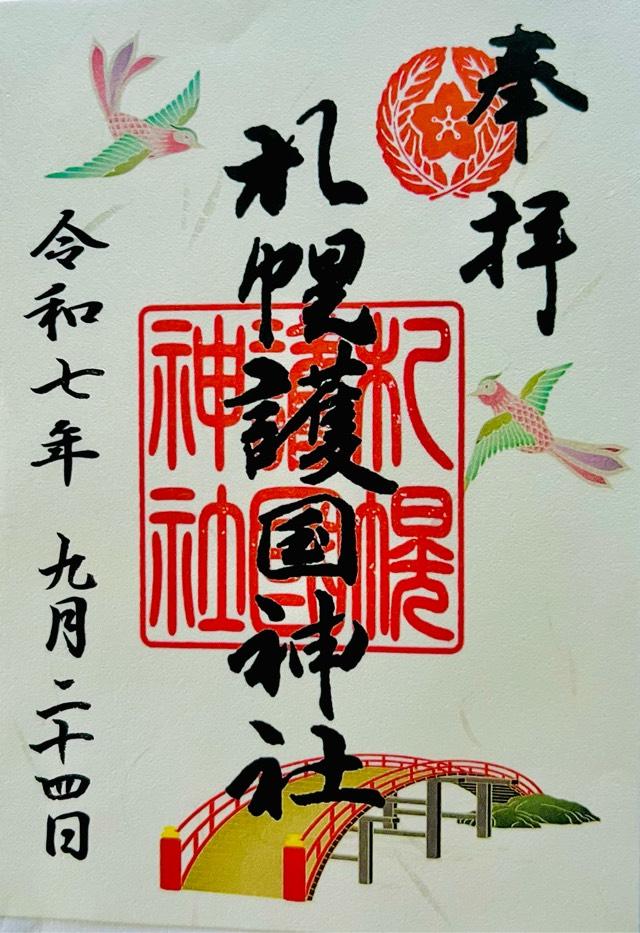 奉拝
札幌護国神社
札幌
護國
神社
令和七年 九月二十四日